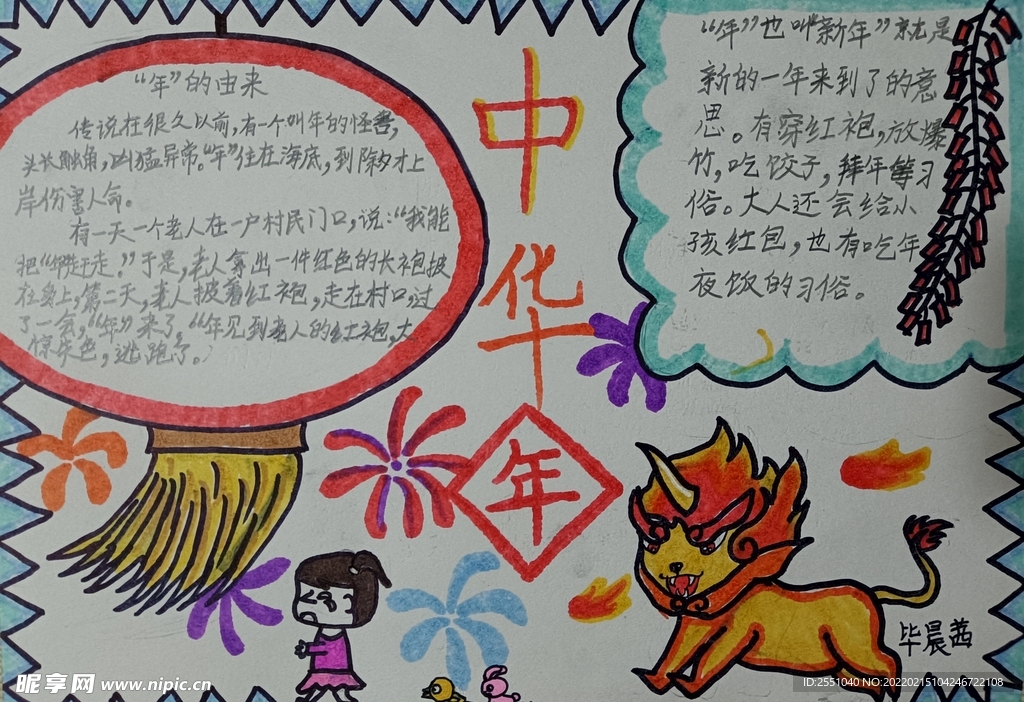 “年”的由来
传说在很久以前,有一个叫年的怪兽,
头长触角,凶猛异常。“年”住在海底,到除夕才上
岸伤害人命。
有一天一个老人在一户村民门口,说:“我能
把“年”赶走。”于是,老人拿出一件红色的长袍披
在身上,第二天,老人披着红袍,走在村口,过
了一会,“年”来了。“年见到老人的红袍,大
惊失色,逃跑了。
中
华
年
“年”也叫“新年”就是
新的一年来到了的意
思。有穿红袍,放爆
竹,吃饺子,拜年等习
俗。大人还会给小
孩红包,也有吃年
夜饭的习俗。
毕晨茜
昵享网 www.nipic.cn
ID:2551040 NO:20220215104246722108